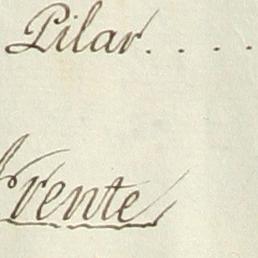 Pilar. . . .
Frente